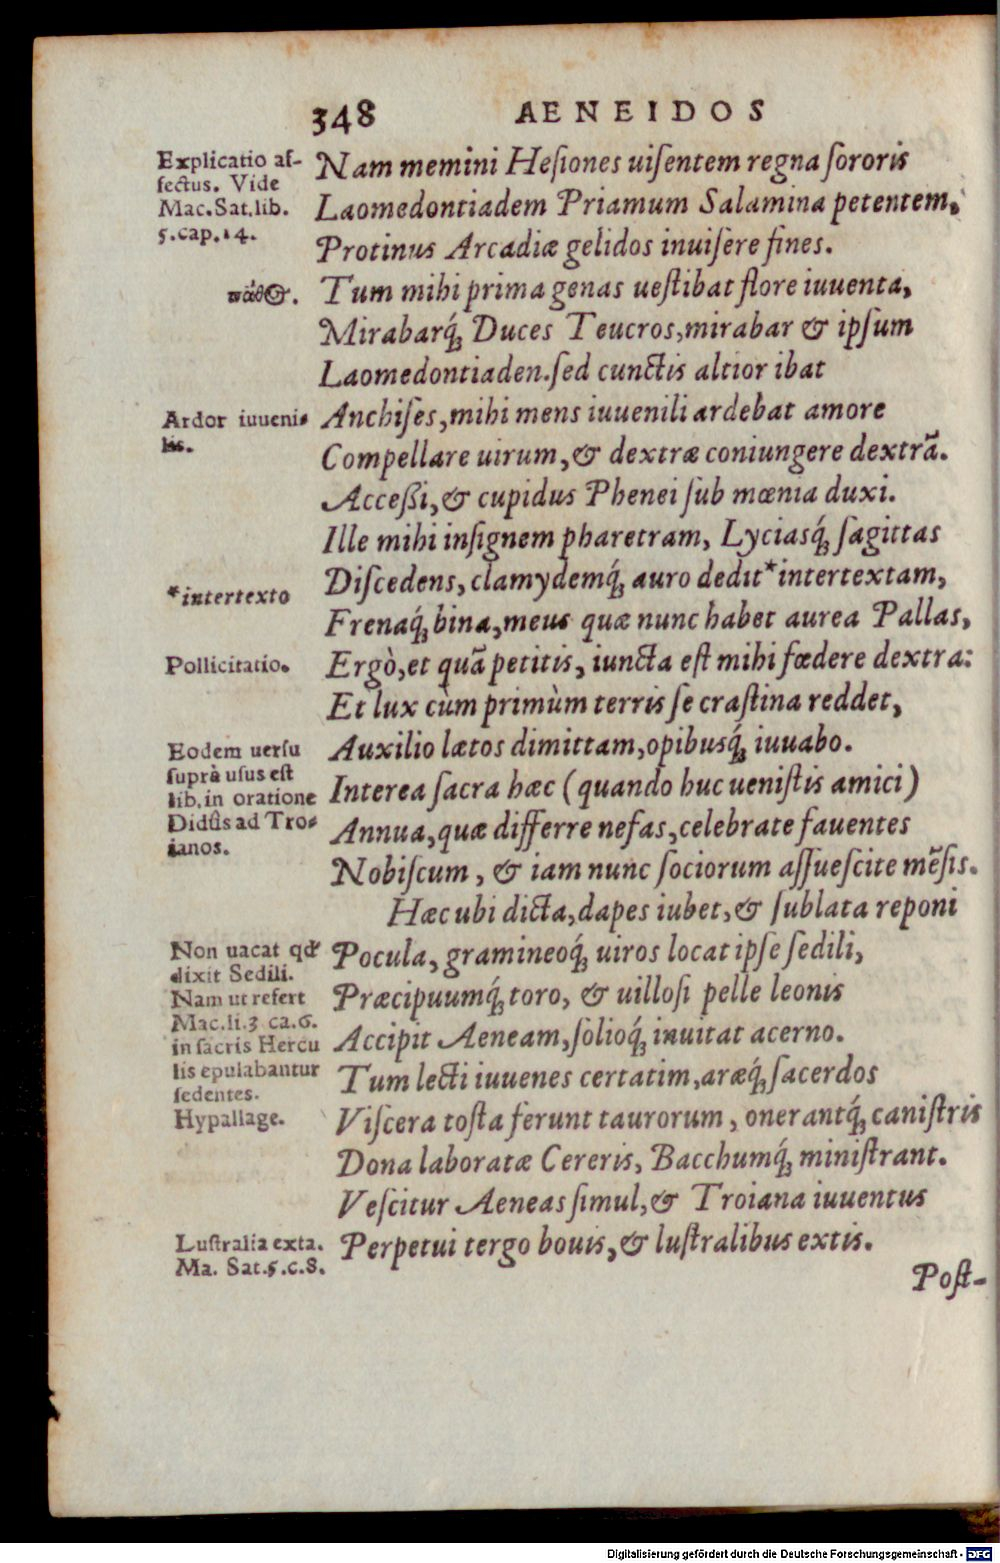 348 AENEIDOS
Explicatio af-
fectus. Vide
Mac. Sat. lib.
5. cap. 14.
Nam memini Hesiones uiſentem regna ſororis
Laomedontiadem Priamum Salamina petentem,
Protinus Arcadiæ gelidos inuiſere fines.
πάθος.
Tum mihi prima genas ueſtibat flore iuuenta,
Mirabarq́; Duces Teucros, mirabar & ipſum
Laomedontiaden. ſed cunctis altior ibat
Ardor iuueni-
lis.
Anchiſes, mihi mens iuuenili ardebat amore
Compellare uirum, & dextræ coniungere dextrã.
Acceßi, & cupidus Phenei ſub mœnia duxi.
Ille mihi inſignem pharetram, Lyciasq́; ſagittas
Diſcedens, clamydemq́; auro dedit *intertextam,
*intertexto
Frenaq́; bina, meus quæ nunc habet aurea Pallas,
Pollicitatio.
Ergò, et quã petitis, iuncta eſt mihi fœdere dextra:
Et lux cùm primùm terris ſe craſtina reddet,
Eodem uerſu
ſuprà uſus eſt
lib. in oratione
Didûs ad Tro-
ianos.
Auxilio lætos dimittam, opibusq́; iuuabo.
Interea ſacra hæc (quando huc ueniſtis amici)
Annua, quæ differre nefas, celebrate fauentes
Nobiſcum, & iam nunc ſociorum aſſueſcite mẽſis.
Hæc ubi dicta, dapes iubet, & ſublata reponi
Non uacat qd'
dixit Sedili.
Nam ut refert
Mac. li. 3 ca. 6.
in ſacris Hercu
lis epulabantur
ſedentes.
Hypallage.
Pocula, gramineoq́; uiros locat ipſe ſedili,
Præcipuumq́; toro, & uilloſi pelle leonis
Accipit Aeneam, ſolioq́; inuitat acerno.
Tum lecti iuuenes certatim, aræq́; ſacerdos
Viſcera toſta ferunt taurorum, onerantq́; caniſtris
Dona laboratæ Cereris, Bacchumq́; miniſtrant.
Veſcitur Aeneas ſimul, & Troiana iuuentus
Luſtralia exta.
Ma. Sat. 5. c. 8.
Perpetui tergo bouis, & luſtralibus extis.
Poſt-
Digitalisierung gefördert durch die Deutsche Forschungsgemeinschaft - DFG